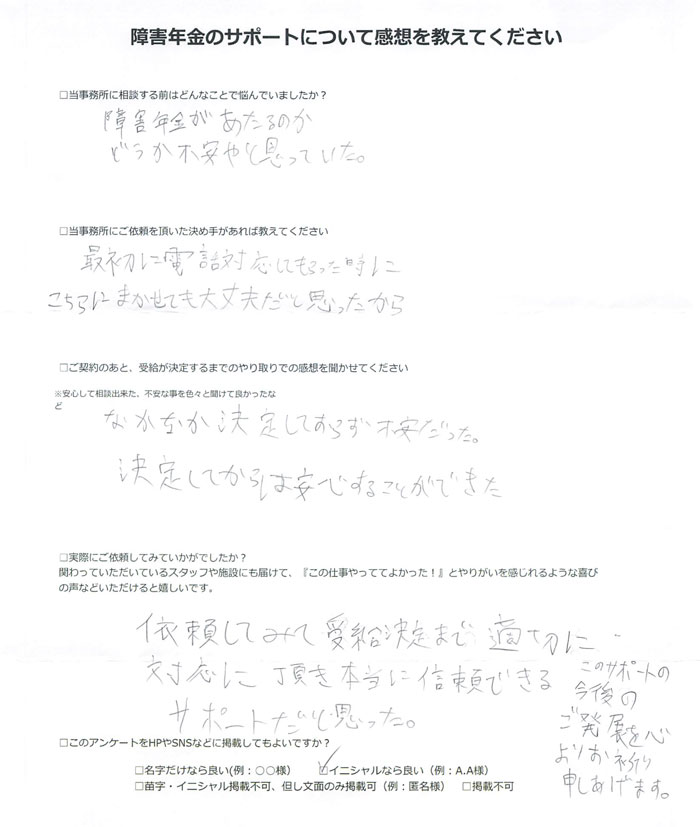 障害年金のサポートについて感想を教えてください
□当事務所に相談する前はどんなことで悩んでいましたか？
障害年金があたるのか
どうか不安やと思っていた。
□当事務所にご依頼を頂いた決め手があれば教えてください
最初に電話対応してもらった時に
こちらにまかせても大丈夫だと思ったから
□ご契約のあと、受給が決定するまでのやり取りでの感想を聞かせてください
※安心して相談出来た、不安な事を色々と聞けて良かったな
ど
なかなか決定しておらず不安だった。
決定してからは安心することができた
□実際にご依頼してみていかがでしたか？
関わっていただいているスタッフや施設にも届けて、『この仕事やっててよかった！』とやりがいを感じれるような喜び
の声などいただけると嬉しいです。
依頼してみて受給決定まで適切に
対応に頂き本当に信頼できる
サポートだと思った。
このサポートの
今後の
ご発展を心
よりお祈り
申しあげます。
□このアンケートをHPやSNSなどに掲載してもよいですか？
□名字だけなら良い(例：〇〇様) ☑イニシャルなら良い（例：A.A様）
□苗字・イニシャル掲載不可、但し文面のみ掲載可（例：匿名様） □掲載不可